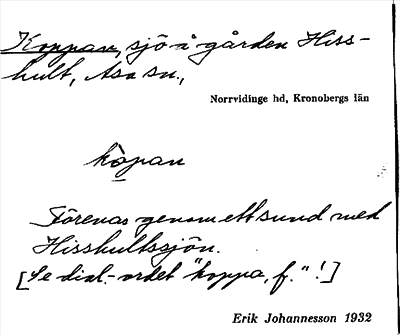 Koppan, sjö å gården Hiss-
hult, Asa sn.,
Norrvidinge hd, Kronobergs län
kòpan
Förenas genom ett sund med
Hisshultssjön.
[Se dial.-ordet "koppa, f."!]
Erik Johannesson 1932